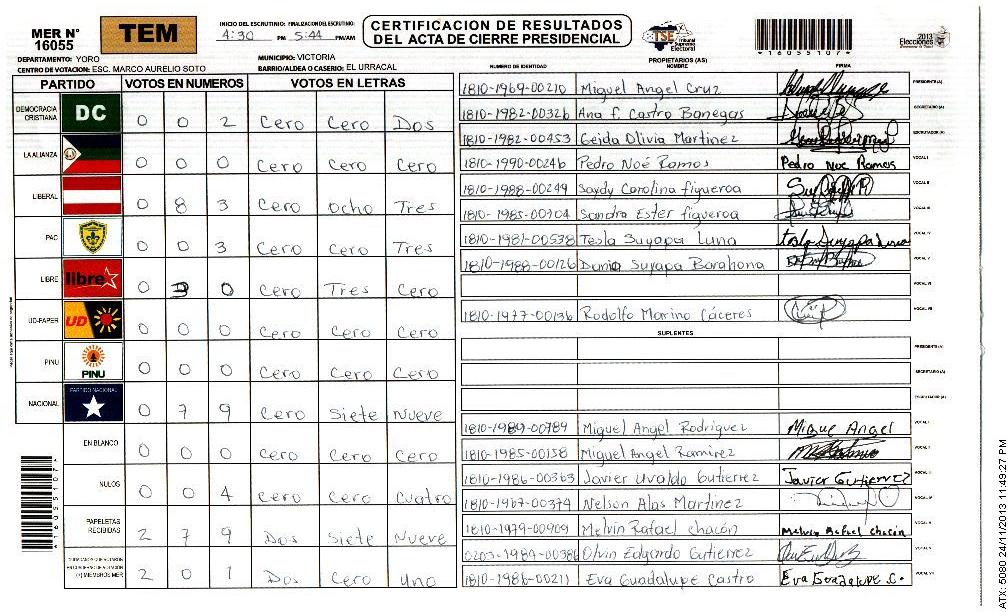 MER N°
16055
TEM
INICIO DEL ESCRUTINIO: FINALIZACION DEL ESCRUTINIO:
4:30 PM 5:44 PM/AM
CERTIFICACION DE RESULTADOS
DEL ACTA DE CIERRE PRESIDENCIAL
TSE Tribunal Supremo Electoral
*16055107*
2013
Elecciones
DEPARTAMENTO: YORO
MUNICIPIO: VICTORIA
CENTRO DE VOTACION: ESC. MARCO AURELIO SOTO
BARRIO/ALDEA O CASERIO: EL URRACAL
PARTIDO VOTOS EN NUMEROS VOTOS EN LETRAS
DEMOCRACIA CRISTIANA DC 0 0 2 Cero Cero Dos
LA ALIANZA 0 0 0 Cero Cero Cero
LIBERAL 0 8 3 Cero Ocho Tres
PAC 0 0 3 Cero Cero Tres
LIBRE libre 0 3 0 Cero Tres Cero
UD-FAPER UD 0 0 0 Cero Cero Cero
PINU PINU 0 0 0 Cero Cero Cero
NACIONAL PARTIDO NACIONAL 0 7 9 Cero Siete Nueve
EN BLANCO 0 0 0 Cero Cero Cero
NULOS 0 0 4 Cero Cero Cuatro
PAPELETAS RECIBIDAS 2 7 9 Dos Siete Nueve
(+) MIEMBROS MER 2 0 1 Dos Cero Uno
*16055107*
PROPIETARIOS (AS)
NUMERO DE IDENTIDAD NOMBRE FIRMA
1810-1969-00210 Miguel Angel Cruz PRESIDENTE(A)
1810-1982-00326 Ana f. Castro Banegas SECRETARIO(A)
1810-1982-00453 Geida Olivia Martinez ESCRUTADOR(A)
1810-1990-00246 Pedro Noé Ramos Pedro Noe Ramos VOCAL I
1810-1988-00249 Saydy Carolina figueroa VOCAL II
1810-1985-00104 Sandra Ester figueroa VOCAL III
1810-1981-00538 Tesla Suyapa Luna VOCAL IV
1810-1988-00126 Dunia Suyapa Barahona VOCAL V
VOCAL VI
1810-1977-00136 Rodolfo Marino Cáceres VOCAL VII
SUPLENTES
PRESIDENTE(A)
SECRETARIO(A)
ESCRUTADOR(A)
1810-1989-00789 Miguel Angel Rodriguez Migue Angel VOCAL I
1810-1985-00158 Miguel Angel Ramirez VOCAL II
1810-1986-00363 Javier Uvaldo Gutierrez Javier Gutierrez VOCAL III
1810-1967-00374 Nelson Alas Martinez VOCAL IV
1810-1979-00909 Melvin Rafael chacón Melvin Rafael chacón VOCAL V
0203-1984-00386 Olvin Edgardo Gutierrez VOCAL VI
1810-1986-00211 Eva Guadalupe Castro Eva Guadalupe C. VOCAL VII
ATX 5080 24/11/2013 11:49:27 PM